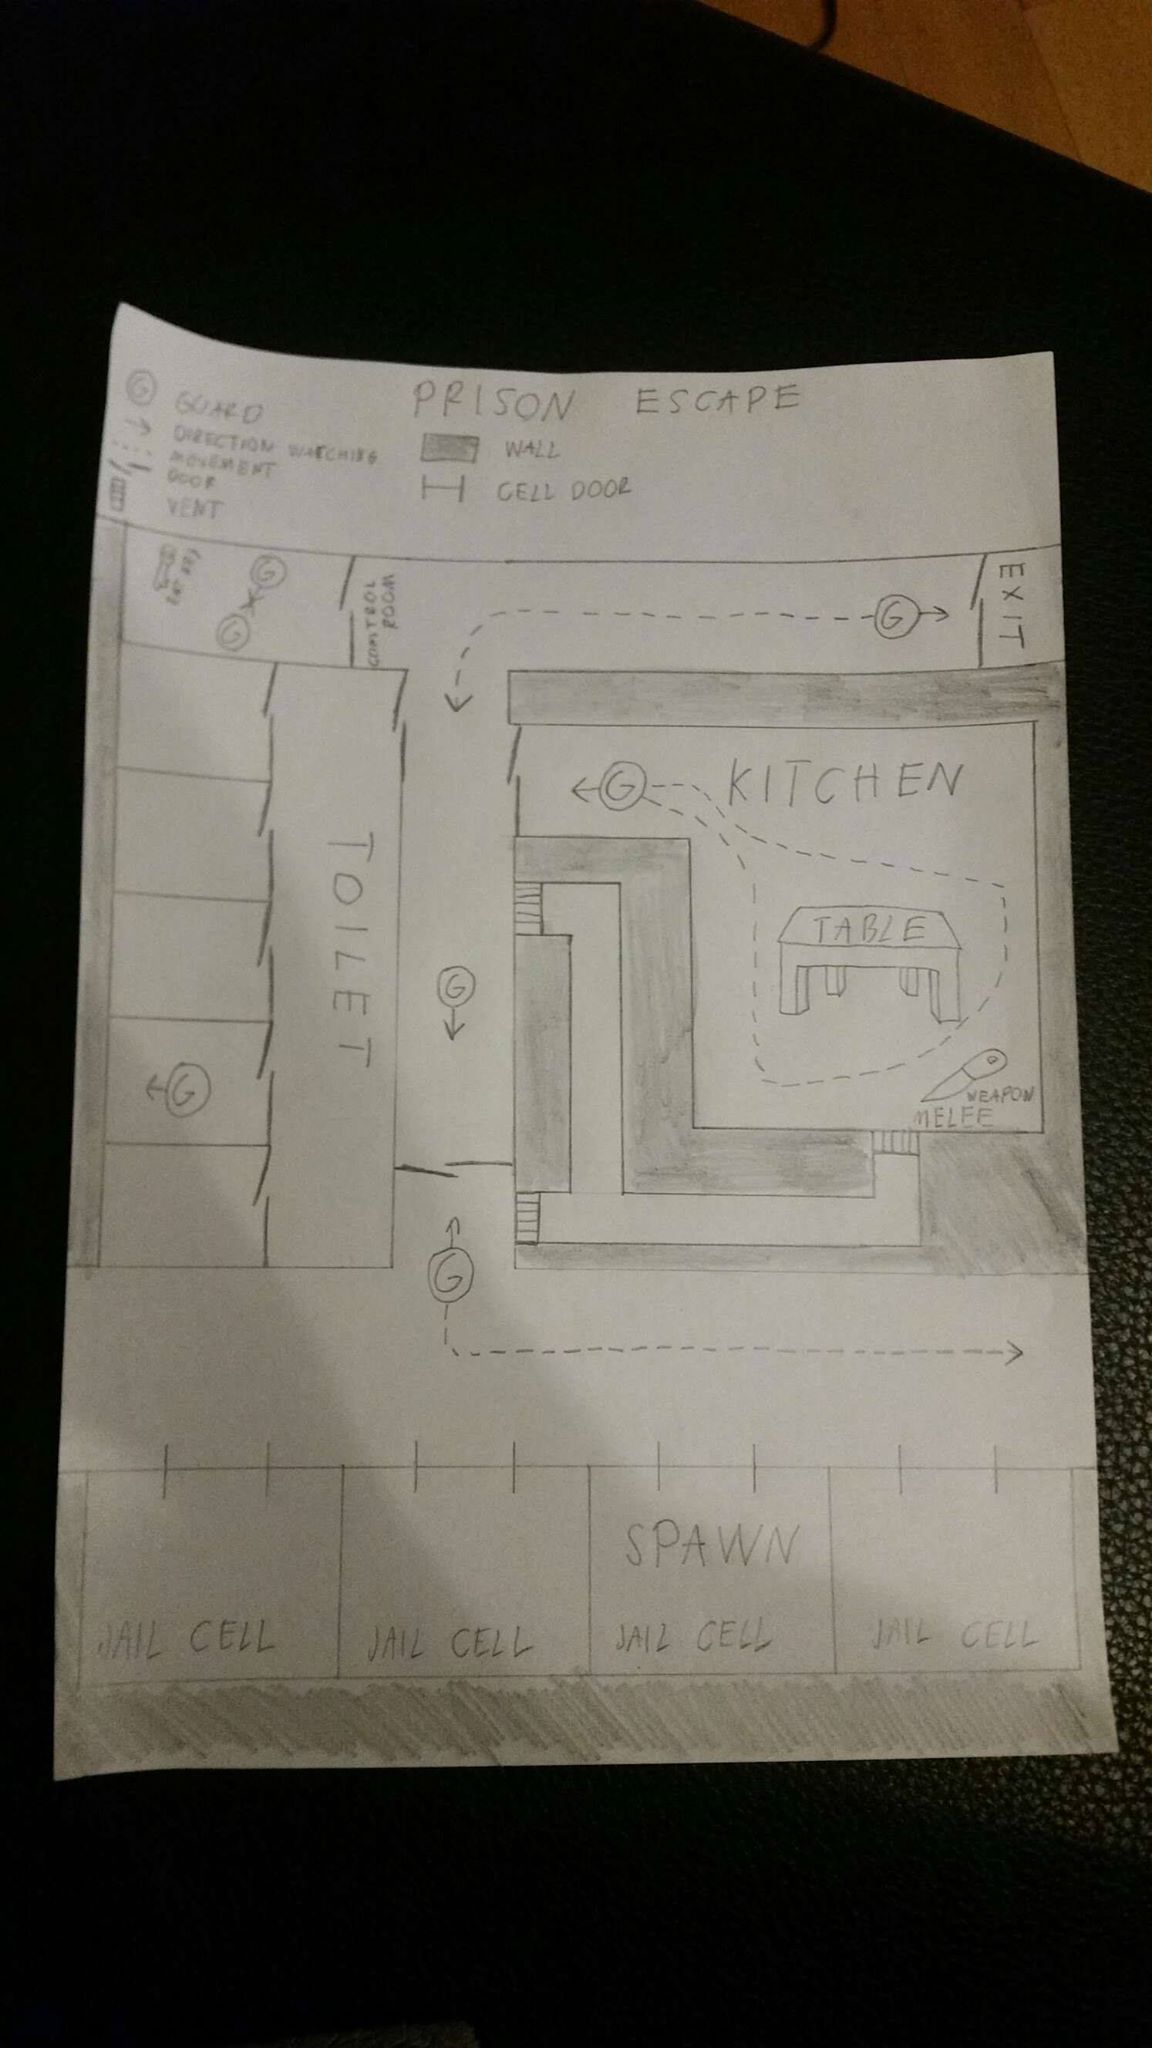 PRISON ESCAPE
G GUARD
DIRECTION WATCHING
MOVEMENT
DOOR
VENT
WALL
CELL DOOR
G
G
CONTROL
ROOM
G
EXIT
G
KITCHEN
TOILET
TABLE
G
G
WEAPON
MELEE
G
SPAWN
JAIL CELL
JAIL CELL
JAIL CELL
JAIL CELL